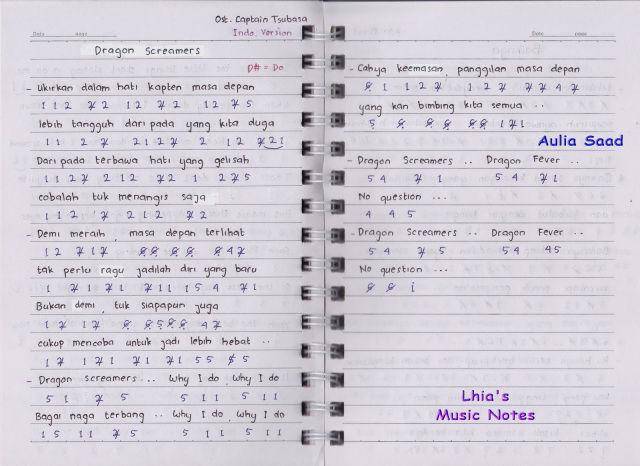 Ost. Captain Tsubasa
Date page Indo. Version
Dragon Screamers
D# = Do
- Ukirkan dalam hati kapten masa depan
1 1 2 7̸ 2 1 2 7̸ 2 1 2 7̸ 5
lebih tangguh dari pada yang kita duga
1 1 2 7̸ 2 1 2 7̸ 2 1 2 7̸ 2 1
Dari pada terbawa hati yang gelisah
1 1 2 7̸ 2 1 2 7̸ 2 1 2 7̸ 5
cobalah tuk menangis saja
1 1 2 7̸ 2 1 2 7̸ 2
- Demi meraih, masa depan terlihat
1 2 7̸ 1 7̸ 6̸ 6̸ 6̸ 6̸ 6̸ 4 7̸
tak perlu ragu jadilah diri yang baru
1 7̸ 1 7̸ 1 7̸ 1 1 1 5 4 7̸ 1
Bukan demi, tuk siapapun juga
1 7̸ 1 7̸ 6̸ 6̸ 5 6̸ 6̸ 4 7̸
cukup mencoba untuk jadi lebih hebat ..
1 7̸ 1 7̸ 1 7̸ 1 7̸ 1 5 5 5̸ 5
- Dragon Screamers ... Why I do, Why I do
5 1 7̸ 5 5 1 1 5 1 1
Bagai naga terbang .. Why I do, Why I do
1 5 1 1 7̸ 5 5 1 1 5 1 1
Date page
- Cahya keemasan, panggilan masa depan
6̸ 1 1 2 7̸ 1 2 7̸ 7̸ 7̸ 4 7̸
yang kan bimbing kita semua ..
5 6̸ 6̸ 6̸ 6̸ 6̸ 1 7̸ 1
Aulia Saad
- Dragon Screamers .. Dragon Fever ..
5 4 7̸ 1 5 4 7̸ 1
No question ...
4 4 5
- Dragon Screamers .. Dragon Fever...
5 4 7̸ 5 5 4 4 5
No question ...
6̸ 6̸ i
Lhia's
Music Notes